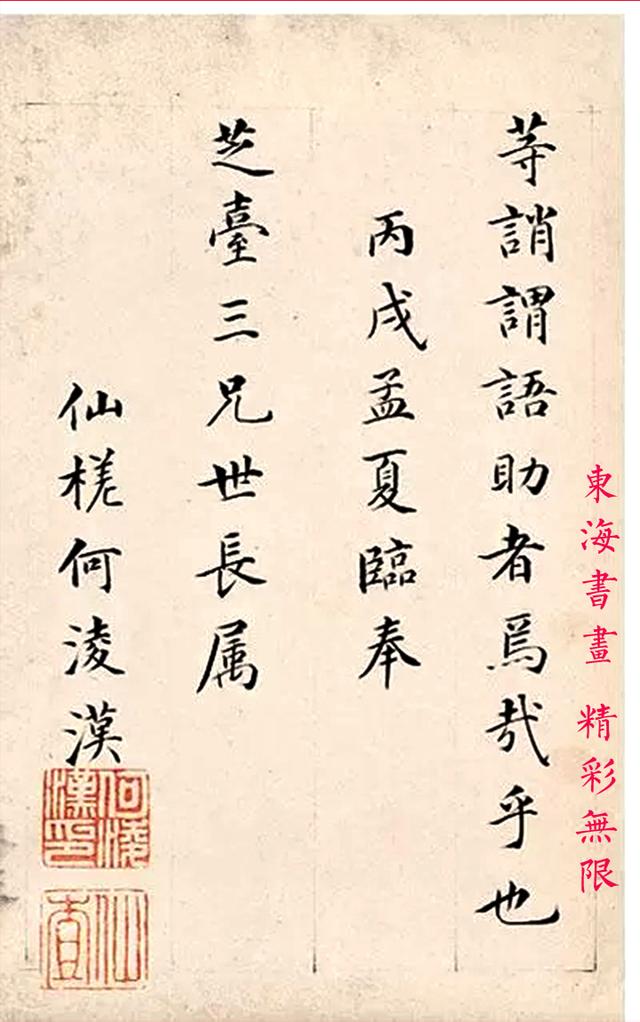 等誚謂語助者焉哉乎也
丙戌孟夏臨奉
芝臺三兄世長属
仙槎何淩漢
何淩漢印
仙槎
東海書畫 精彩無限